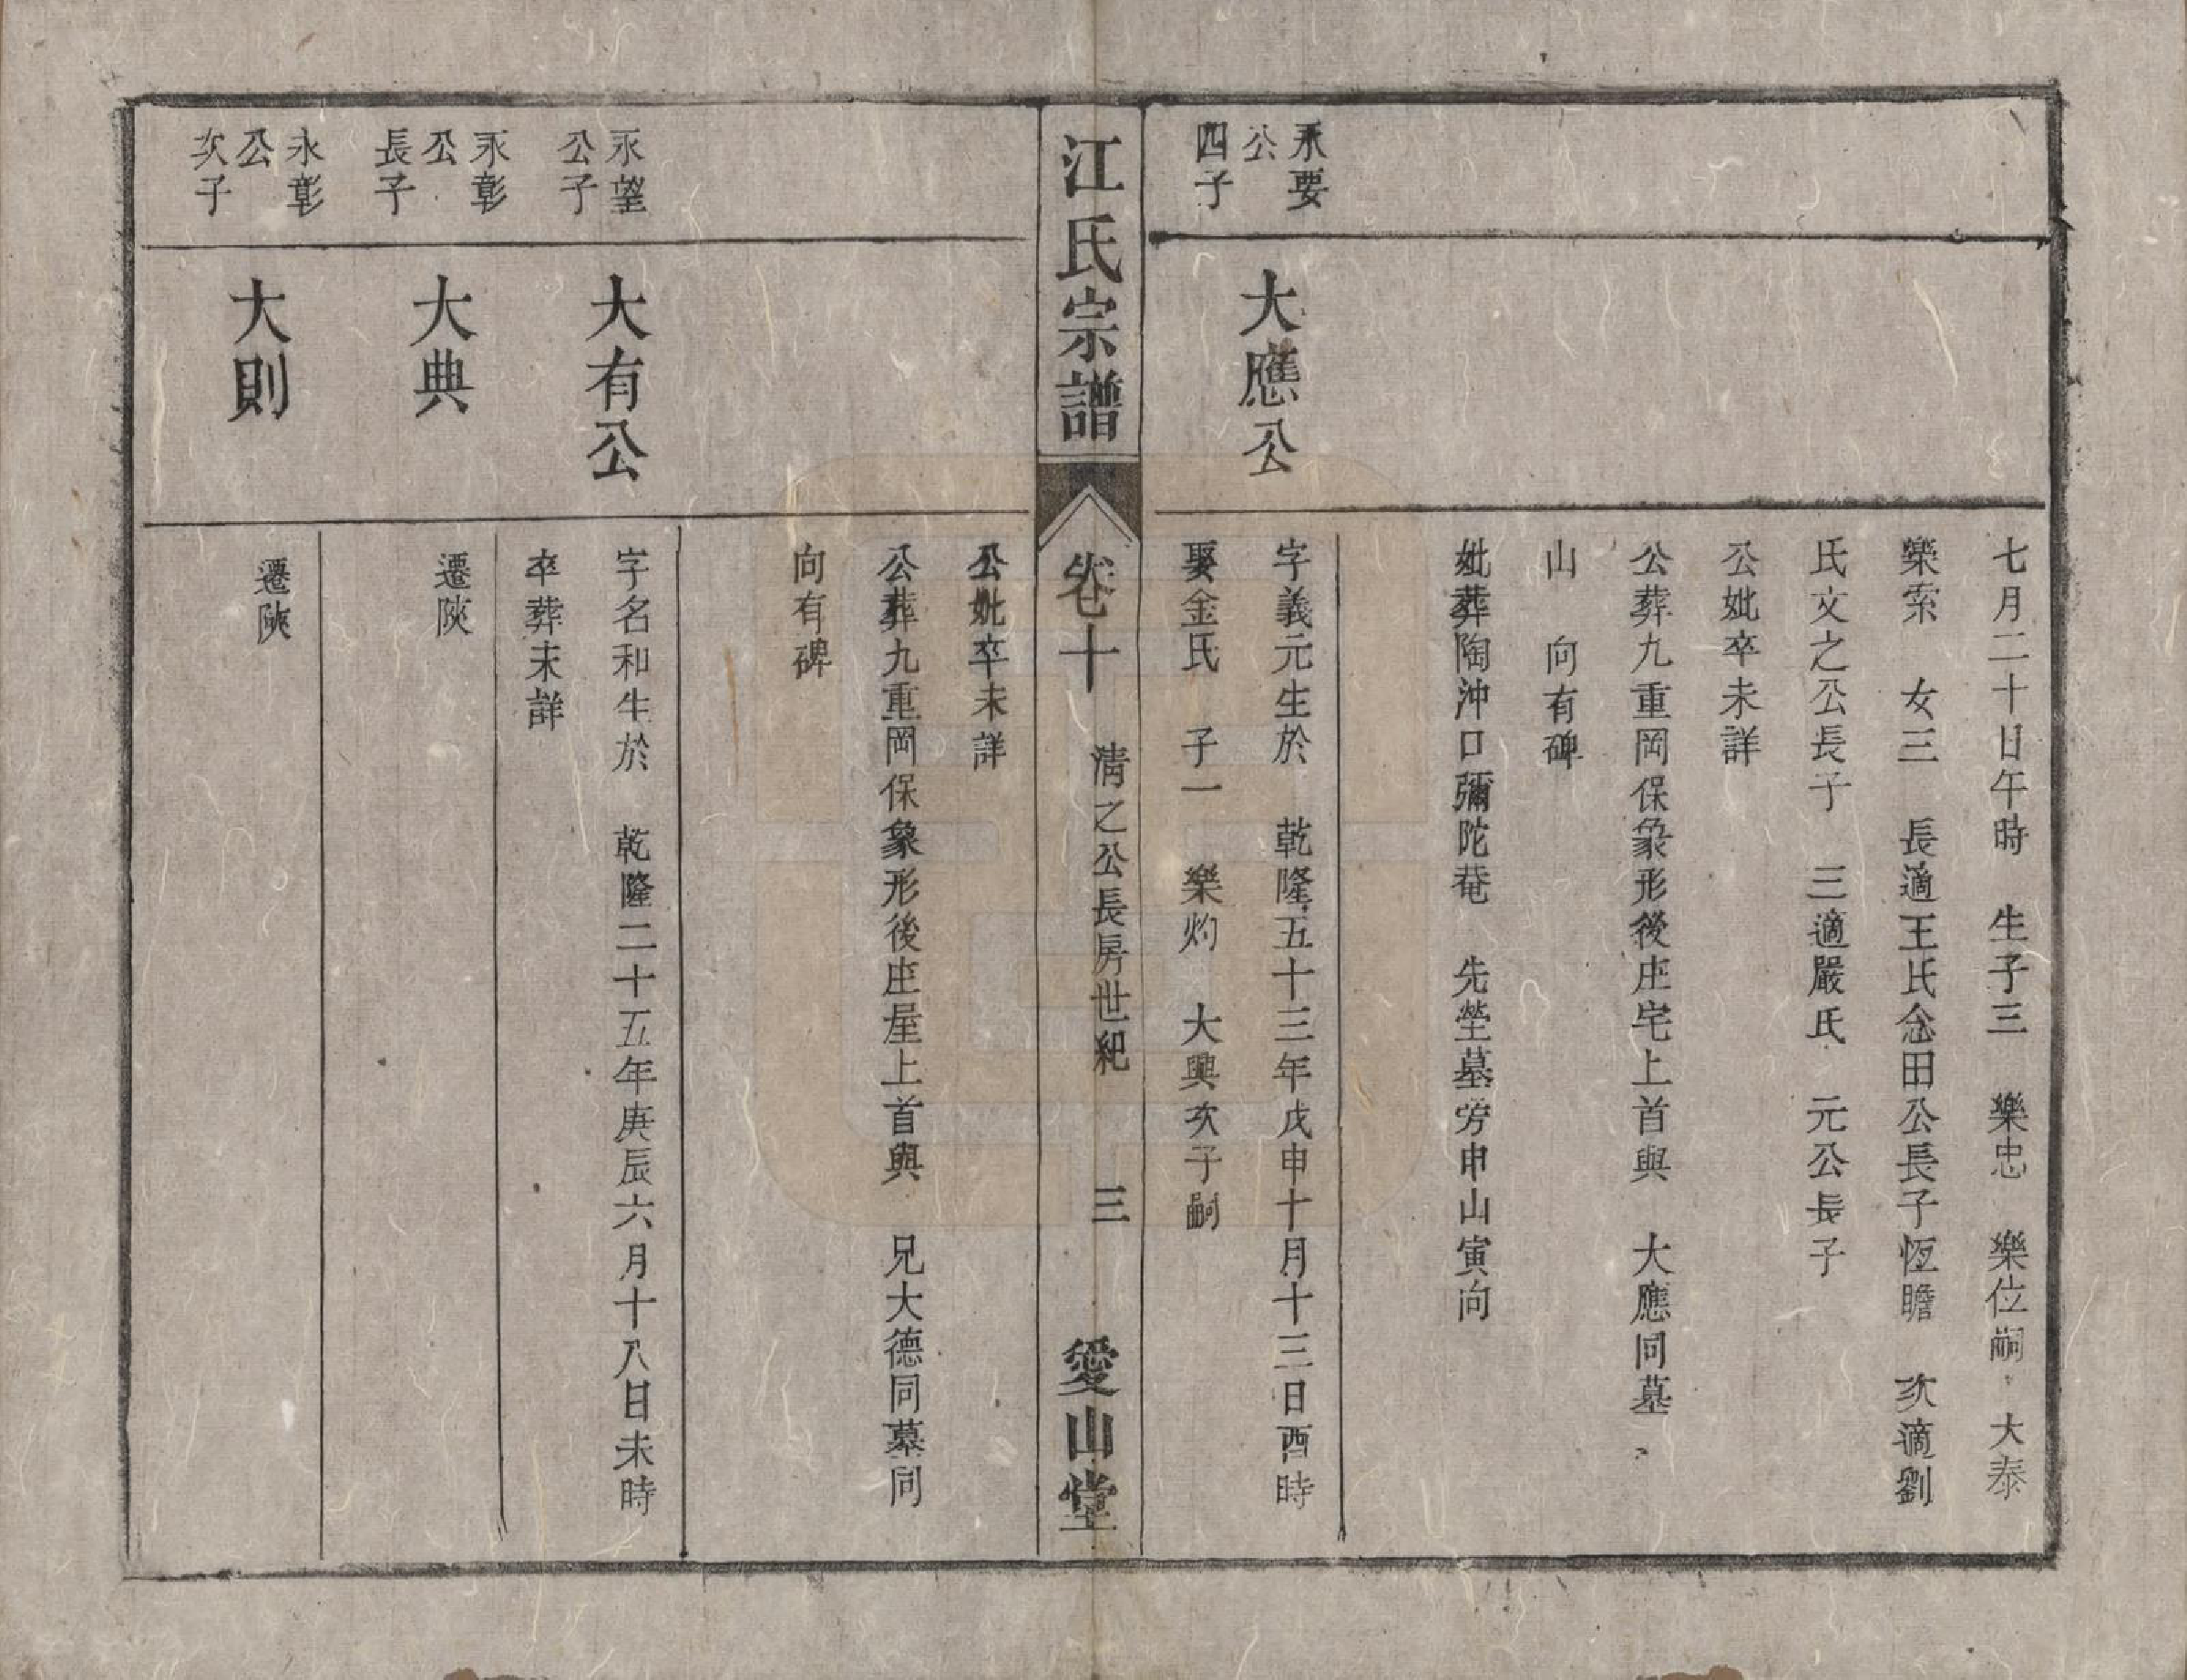 七月二十日午時　生子三　樂忠　樂位嗣　大泰
樂索　女三　長適王氏念田公長子恆瞻　次適劉
氏文之公長子　三適嚴氏　元公長子
公妣卒未詳
公葬九重岡保象形後庄宅上首與　大應同墓
山　向有碑
妣葬陶沖口彌陀菴　先塋墓旁申山寅向
永要
公
四子
大應公
字義元生於　乾隆五十三年戊申十月十三日酉時
娶金氏　子一　樂灼　大興次子嗣
江氏宗譜
卷十
清之公長房世紀
三
愛山堂
公妣卒未詳
公葬九重岡保象形後庄屋上首與　兄大德同墓同
向有碑
永望
公子
大有公
字名和生於　乾隆二十五年庚辰六月十八日未時
卒葬未詳
永彰
公
長子
大典
遷陝
永彰
公
次子
大則
遷陝